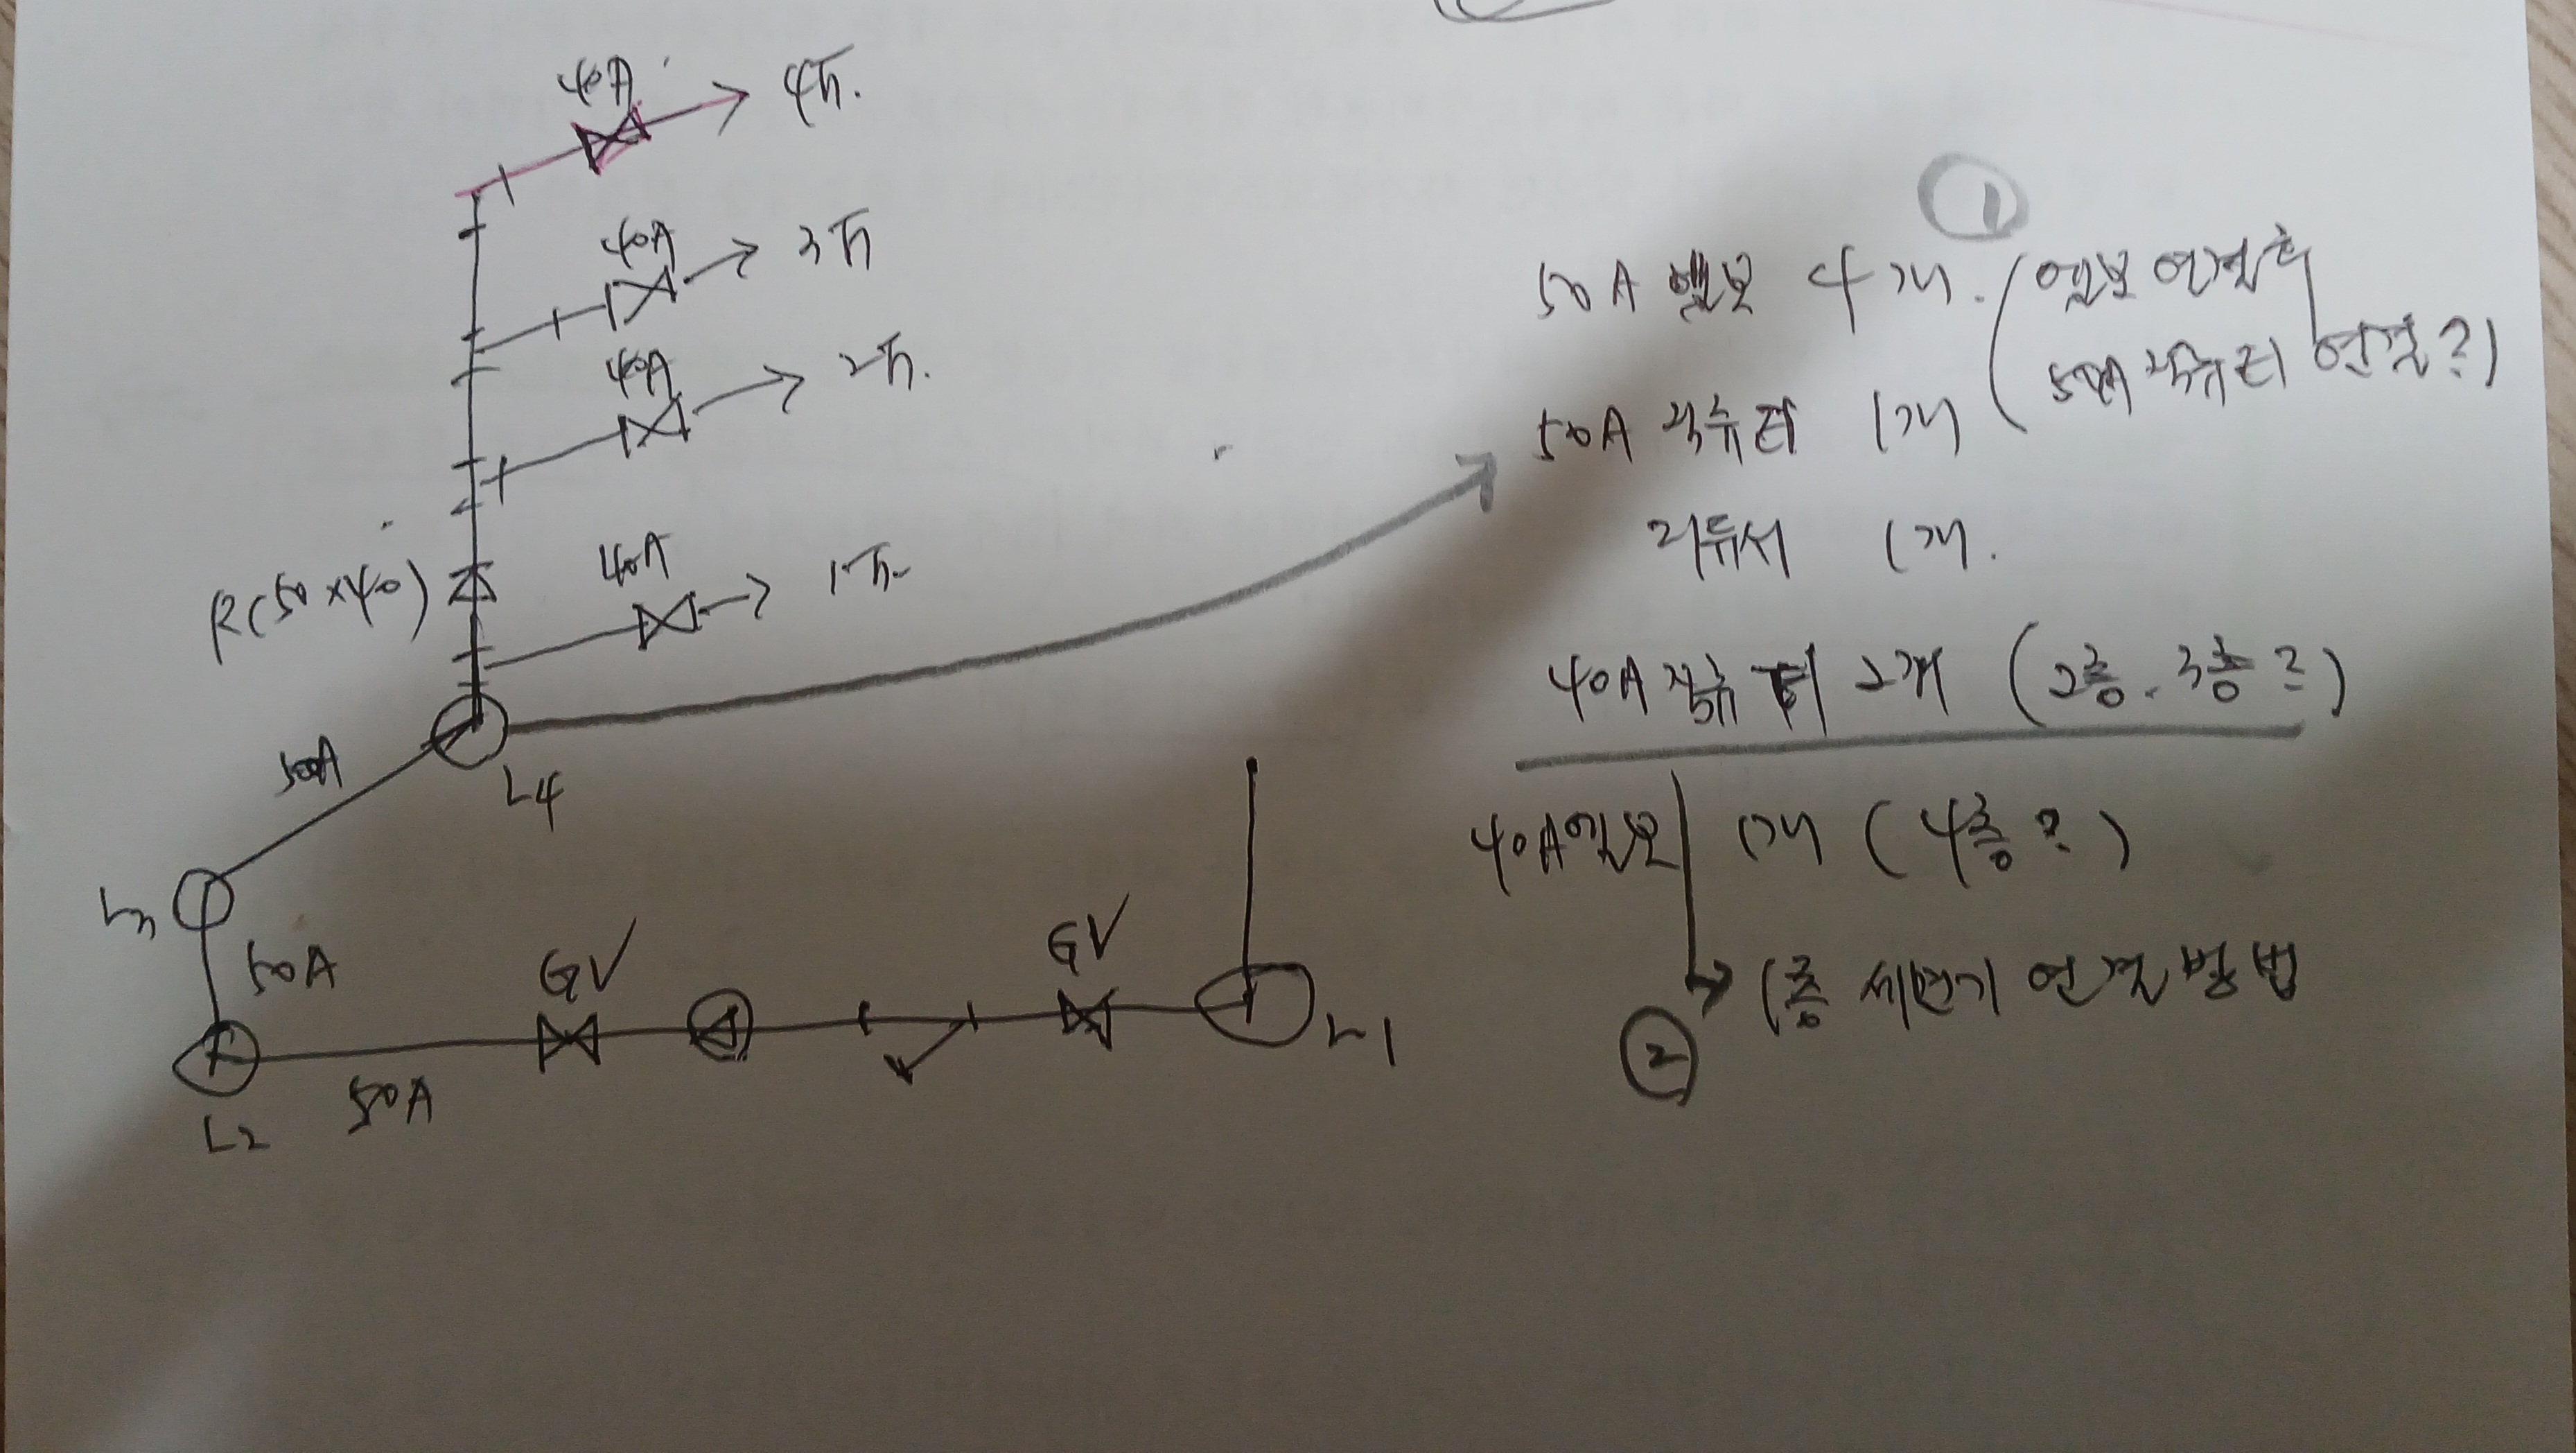 40A
4F.
40A
3F
40A
2F.
40A
1F.
R(50×40)
50A
L4
L3
50A
GV
GV
L1
L2
50A
①
50A 엘보 4개. (엘보 연결 후
50A 직류티 연결?)
50A 직류티 1개
리듀서 1개.
40A 직류 티 2개 (2층. 3층?)
40A 엘보 1개 (4층?)
② 1층 세면기 연결 방법